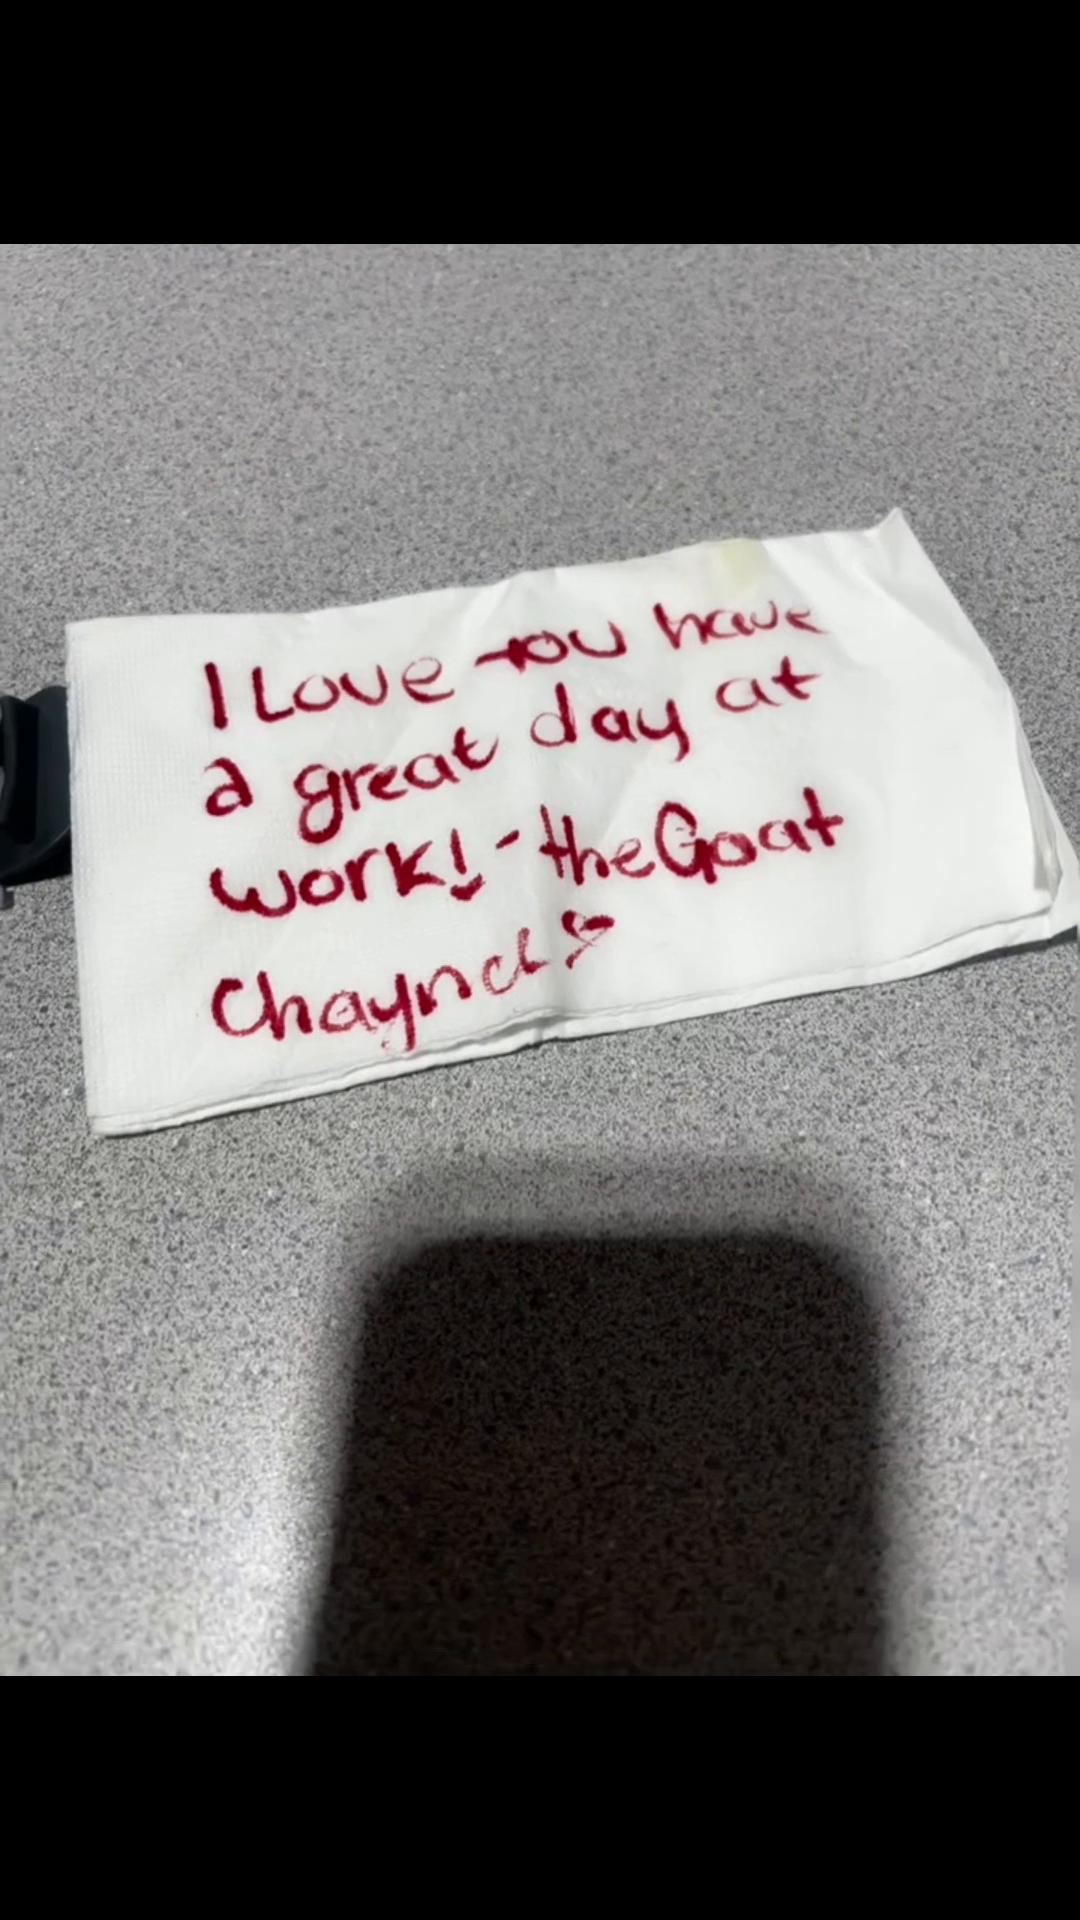 I Love you have
a great day at
work! - the Goat